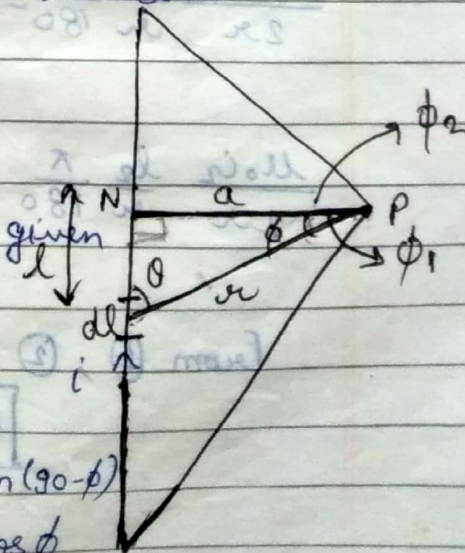 ϕ₂
N a P
given ϕ ϕ₁
l θ r
dl
i
n(90-ϕ)
os ϕ